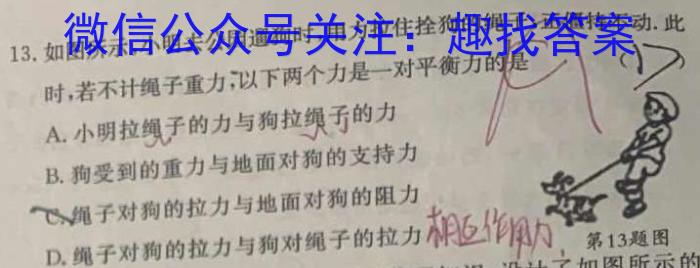 微信公众号关注：趣找答案
13. 如图所示,小明去公园遛狗时,用力拉住拴狗的绳子 动. 此
时,若不计绳子重力,以下两个力是一对平衡力的是
A. 小明拉绳子的力与狗拉绳子的力
B. 狗受到的重力与地面对狗的支持力
C. 绳子对狗的拉力与地面对狗的阻力
D. 绳子对狗的拉力与狗对绳子的拉力 相互作用力
第13题图
如图所示的